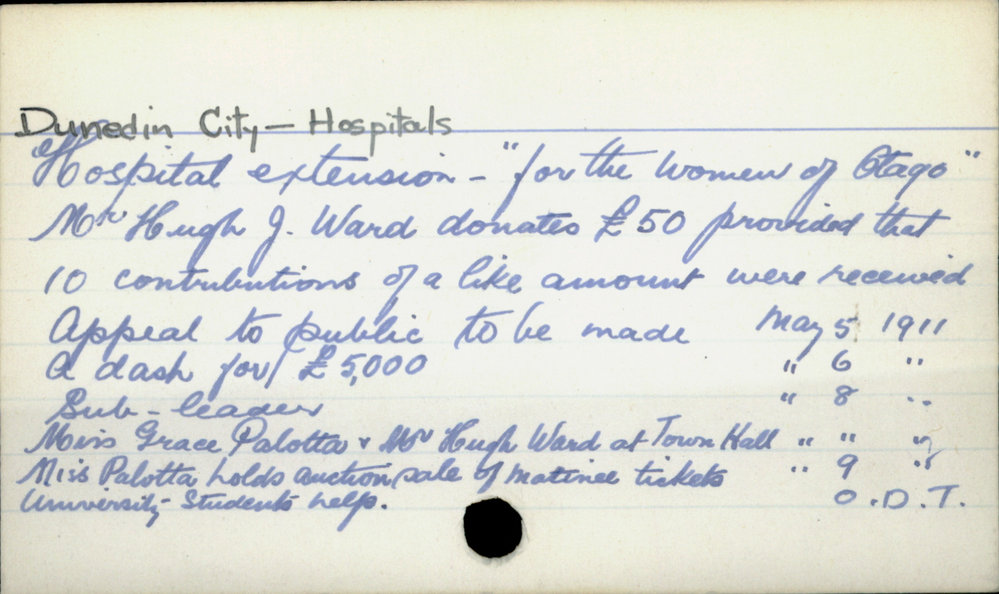 Dunedin City — Hospitals
Hospital extension - "for the Women of Otago"
Mr Hugh J. Ward donates £50 provided that
10 contributions of a like amount were received
Appeal to public to be made May 5 1911
A dash for £5,000 " 6 "
Sub-leader " 8 "
Miss Grace Palotta & Mr Hugh Ward at Town Hall " " "
Miss Palotta holds auction sale of matinee tickets " 9 "
University Students help. O.D.T.